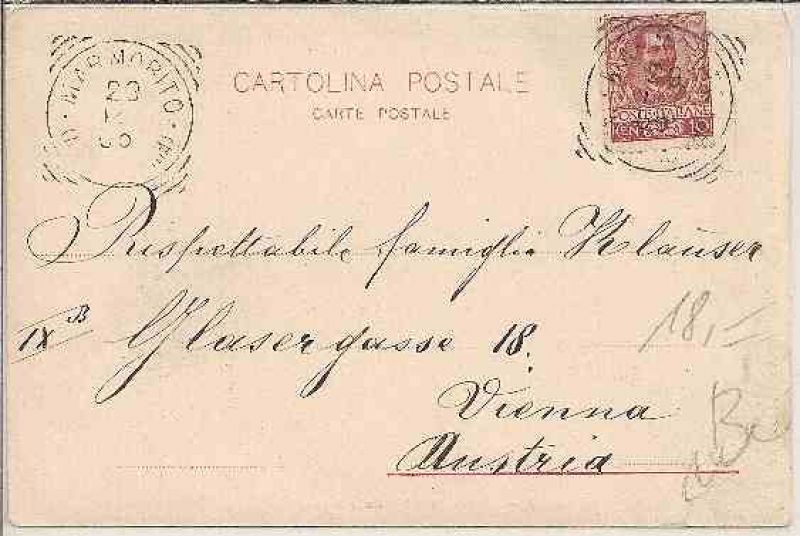 MARMORITO
23
CARTOLINA POSTALE
CARTE POSTALE
POSTE ITALIANE
CEN 10
Rispettabile famiglia Klaüser
IX B Glasergasse 18.
18,–
Vienna
Austria